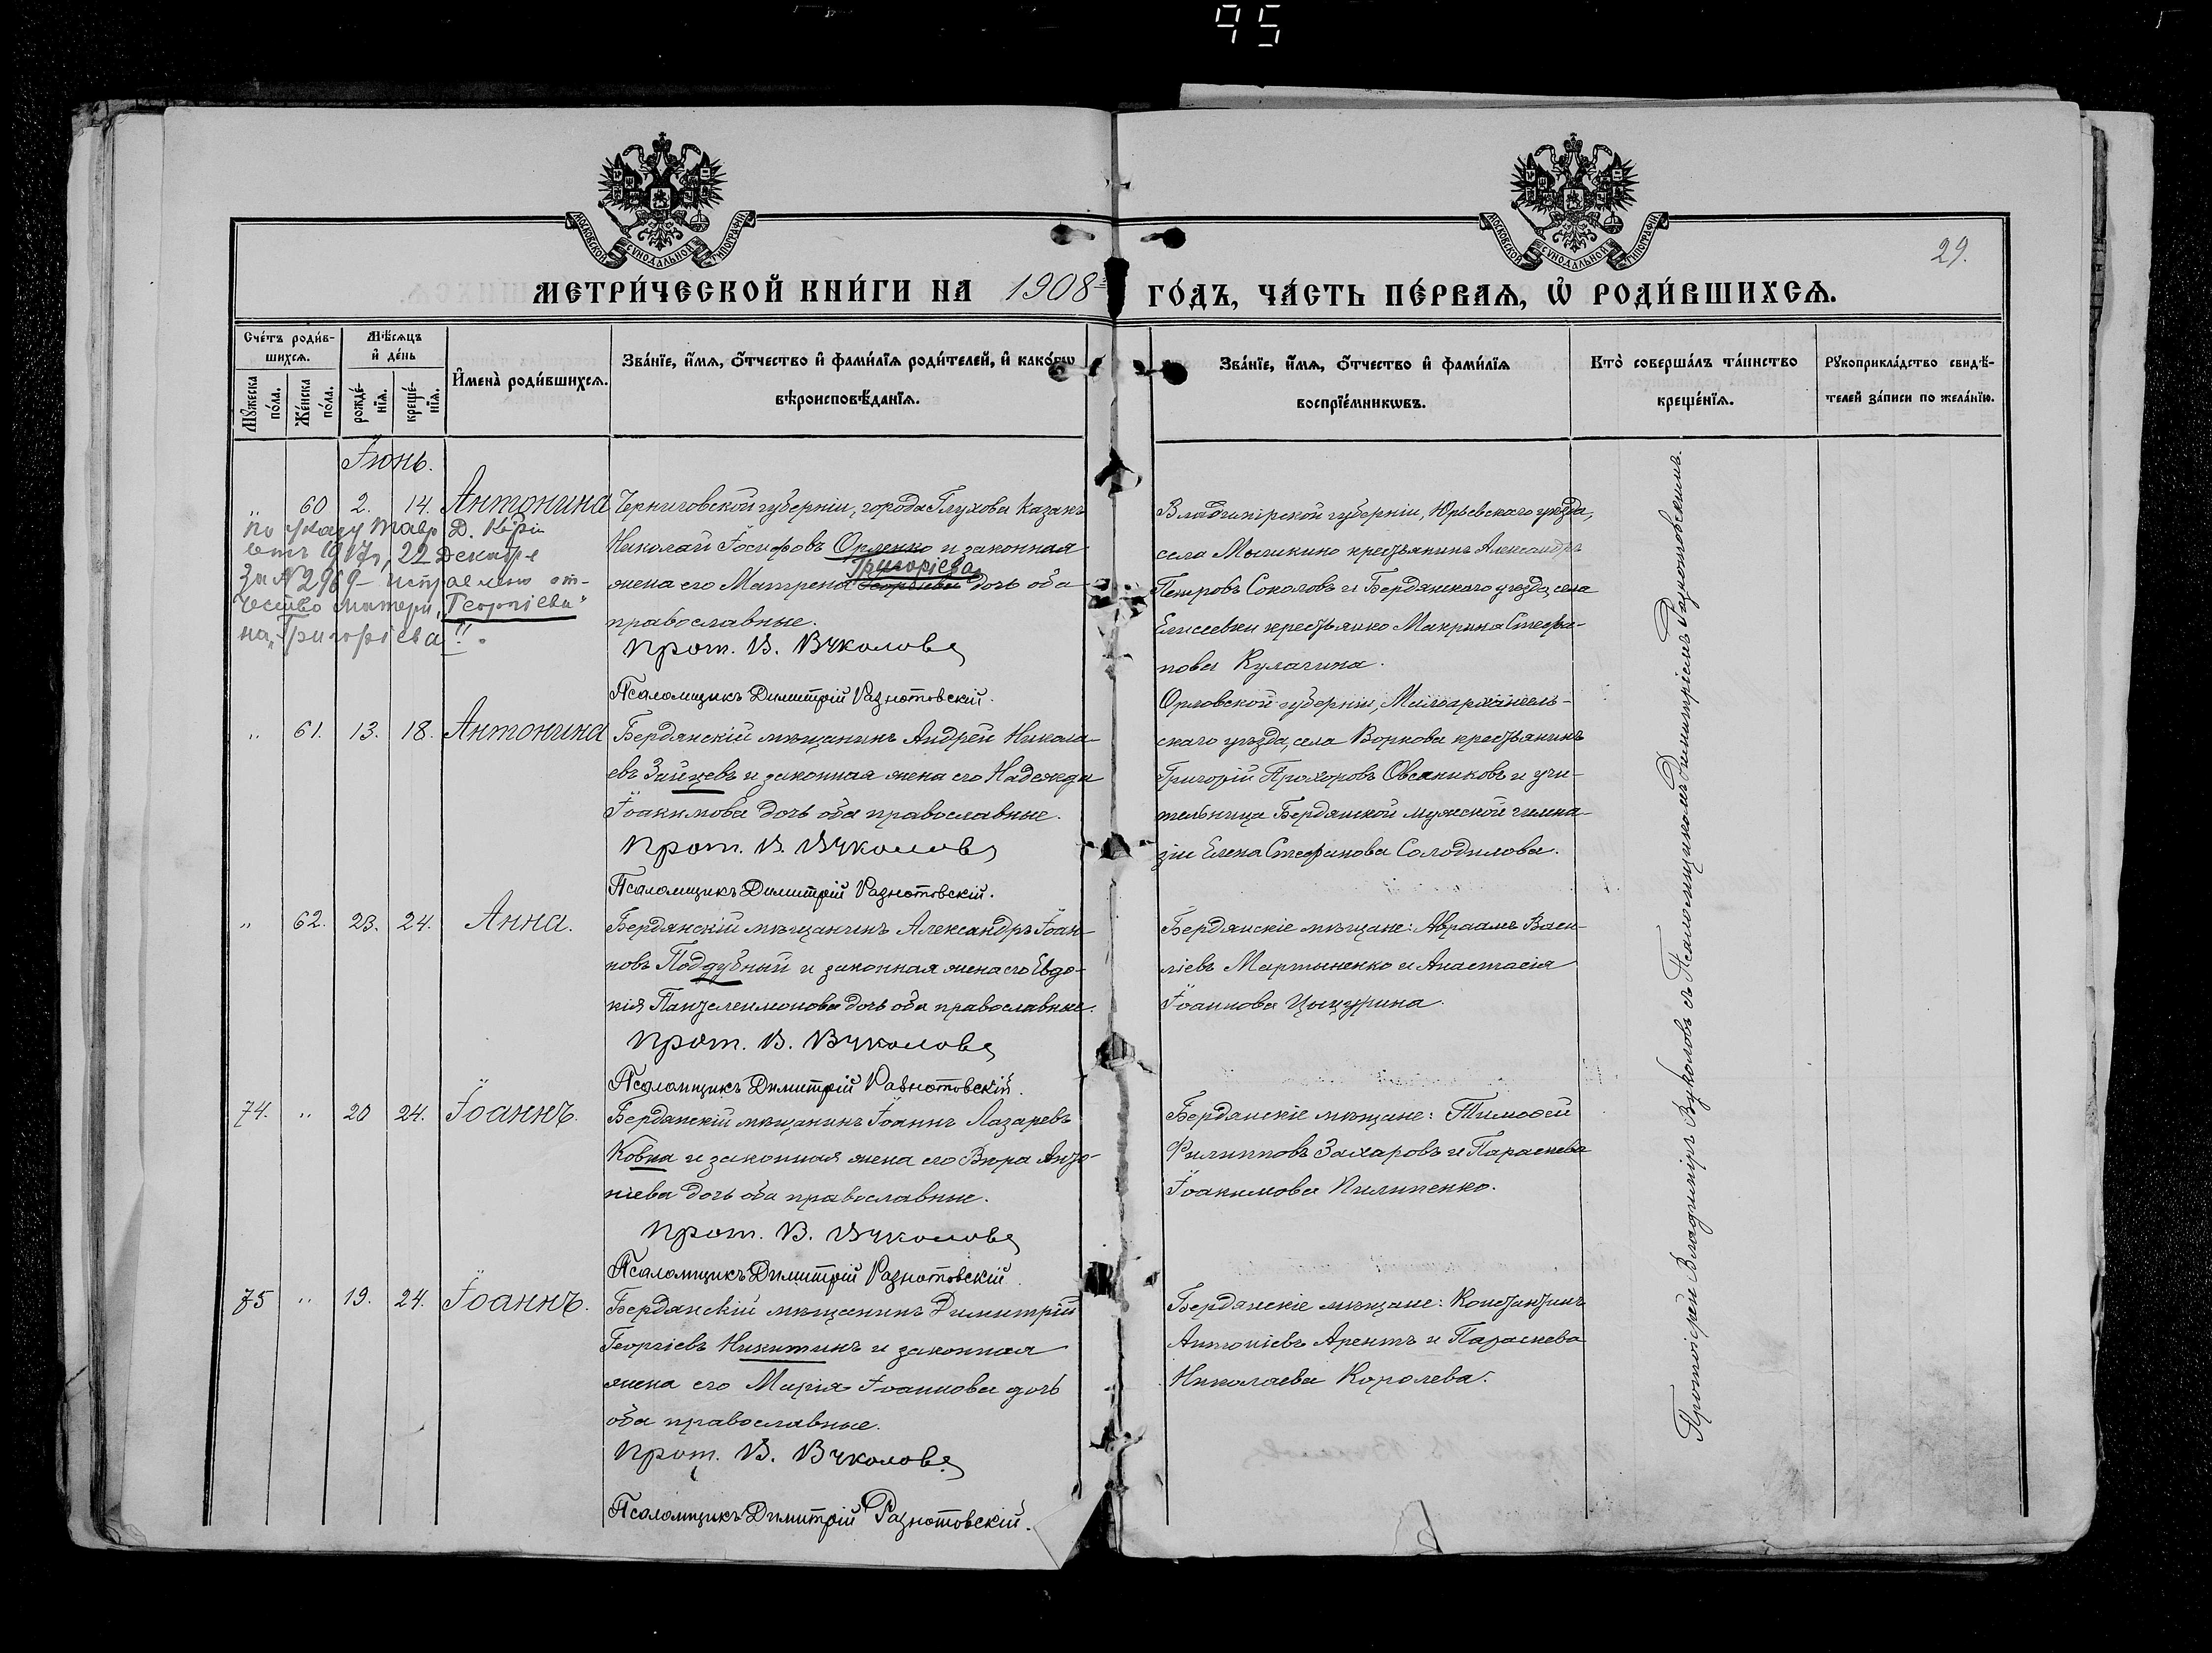 95
МОСКОВСКОЙ СѴНОДАЛЬНОЙ ТИПОГРАФІИ
МОСКОВСКОЙ СѴНОДАЛЬНОЙ ТИПОГРАФІИ
29.
МЕТРИ́ЧЕСКОЙ КНИ́ГИ НА 1908 ГО́ДЪ, ЧА́СТЬ ПЕ́РВАѦ, Ѡ҆ РОДИ́ВШИХСѦ.
Сче́тъ роди́в-
шихсѧ.
Мꙋ́жеска по́ла.
Же́нска по́ла.
Мѣ́сѧцъ
и҆ де́нь
рожде́-
нїѧ.
креще́-
нїѧ.
И҆мена̀ роди́вшихсѧ.
Зва́нїе, и҆́мѧ, ѻ҆́тчество и҆ фами́лїѧ роди́телей, и҆ како́гѡ
вѣроисповѣ́данїѧ.
Зва́нїе, и҆́мѧ, ѻ҆́тчество и҆ фами́лїѧ
воспрїе́мникѡвъ.
Кто̀ соверша́лъ та́инство
креще́нїѧ.
Рꙋкоприкла́дство свидѣ́-
телей за́писи по жела́нїю.
Іюнь.
" 60 2. 14. Антонина
по указу Тавр. Д. Консис
1917 г, 22 Декабря
За № 2969 исправлено от-
чество матери „Георгіева"
на „Григорієва".
Черниговской губерніи, города Глухова казакъ
Николай Іосифовъ Орленко и законная
Григорієва
жена его Матрена Георгіева дочь оба
православные.
Прот. В. Вуколовъ
Псаломщикъ Димитрій Разнотовскій.
Владимірской губерніи, Юрьевскаго уѣзда,
села Мышкино крестьянинъ Александръ
Петровъ Соколовъ и Бердянскаго уѣзда, села
Елисеевки крестьянка Макрина Стефа-
нова Кулагина.
" 61. 13. 18. Антонина
Бердянскій мѣщанинъ Андрей Никола-
евъ Зайцевъ и законная жена его Надежда
Іоакимова дочь оба православные.
Прот. В. Вуколовъ
Псаломщикъ Димитрій Разнотовскій.
Орловской губерніи, Малоархангель-
скаго уѣзда, села Воркова крестьянинъ
Григорій Прохоровъ Овсяниковъ и учи-
тельница Бердянской мужской гимна-
зіи Елена Стефанова Солодилова.
" 62. 23. 24. Анна.
Бердянскій мѣщанинъ Александръ Іоан-
новъ Поддубный и законная жена его Евдо-
кія Пантелеимонова дочь оба православные.
Прот. В. Вуколовъ
Псаломщикъ Димитрій Разнотовскій.
Бердянскіе мѣщане: Авраамъ Васи-
ліевъ Мартыненко и Анастасія
Іоаннова Цыцурина.
74. " 20 24. Іоаннъ.
Бердянскій мѣщанинъ Іоаннъ Лазаревъ
Ковка и законная жена его Вѣра Анто-
ніева дочь оба православные.
Прот. В. Вуколовъ
Псаломщикъ Димитрій Разнотовскій.
Бердянскіе мѣщане: Тимоѳей
Филипповъ Захаровъ и Параскева
Іоакимова Пилипенко.
75 " 19. 24. Іоаннъ.
Бердянскій мѣщанинъ Димитрій
Георгіевъ Никитинъ и законная
жена его Марія Іоаннова дочь
оба православные.
Прот. В. Вуколовъ
Псаломщикъ Димитрій Разнотовскій.
Бердянскіе мѣщане: Константинъ
Антоніевъ Арентъ и Параскева
Николаева Королева.
Протоіерей Владиміръ Вуколовъ съ Псаломщикомъ Димитріемъ Разнотовскимъ.